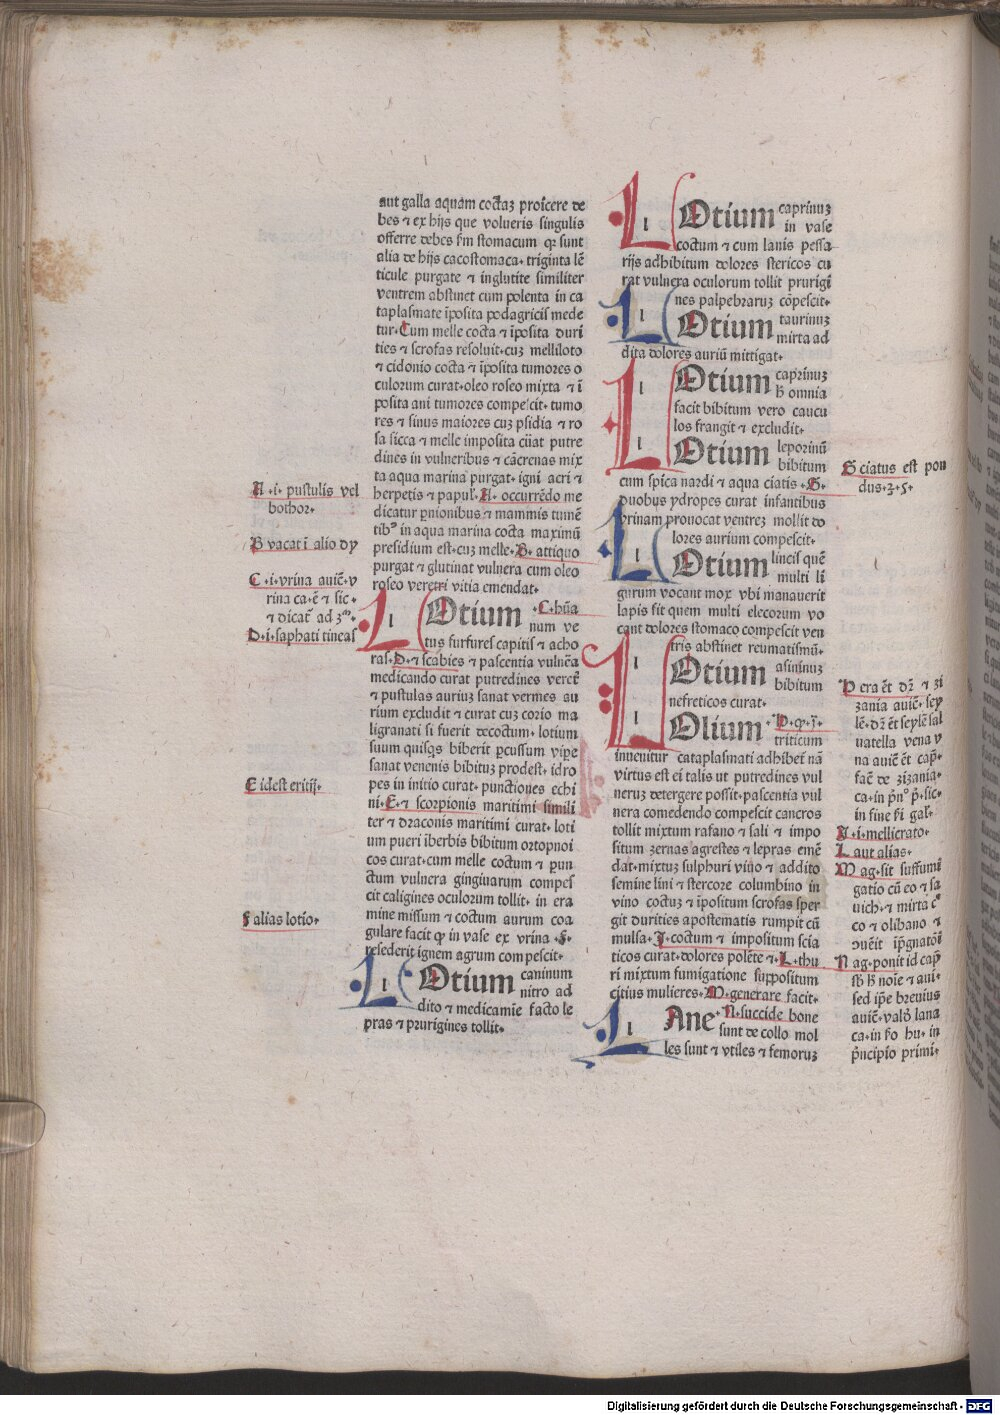 aut galla aquam coctaʒ proicere de
bes ⁊ ex hijs que volueris singulis
offerre debes fm stomacum qꝫ sunt
alia de hijs cacostomaca· triginta lē
ticule purgate ⁊ inglutite similiter
ventrem abstinet cum polenta in ca
taplasmate īposita podagricis mede
tur· Cum melle cocta ⁊ īposita duri
ties ⁊ scrofas resoluit· cuʒ melliloto
⁊ cidonio cocta ⁊ īposita tumores o
culorum curat· oleo roseo mixta ⁊ ī
posita ani tumores compescit· tumo
res ⁊ sinus maiores cuʒ psidia ⁊ ro
sa sicca ⁊ melle imposita cūat putre
dines in vulneribus ⁊ cācrenas mix
ta aqua marina purgat· igni acri ⁊
herpetis ⁊ papul'· A· occurrēdo me
dicatur pnionibus ⁊ mammis tumē
tib⁹ in aqua marina cocta maximū
presidium est· cuʒ melle· B· attiquo
purgat ⁊ glutinat vulnera cum oleo
roseo veretri vitia emendat·
A· i· pustulis vel
bothor·
B vacat ī alio dy
C· i· vrina auiē· v
rina ca· ē ⁊ sic·
⁊ dicat ad ʒ
D· i· saphati tineas
l LOtium · C· hūa
num ve
tus furfures capitis ⁊ acho
ras· D· ⁊ scabies ⁊ pascentia vulnēa
medicando curat putredines veret
⁊ pustulas auriuʒ sanat vermes au
rium excludit ⁊ curat cuʒ corio ma
ligranati si fuerit decoctum· lotium
suum quisqs biberit pcussum vipe
sanat venenis bibituʒ prodest· idro
pes in initio curat· punctiones echi
ni· E· ⁊ scorpionis maritimi simili
ter ⁊ draconis maritimi curat· loti
um pueri īberbis bibitum ortopnoi
cos curat· cum melle coctum ⁊ pun
ctum vulnera gingiuarum compes
cit caligines oculorum tollit· in era
mine missum ⁊ coctum aurum coa
gulare facit qꝫ in vase ex vrina· F·
resederit ignem agrum compescit·
E idest eritij·
F alias lotio·
l LOtium caninum
nitro ad
dito ⁊ medicamīe facto le
pras ⁊ prurigines tollit·
l LOtium caprinuʒ
in vase
coctum ⁊ cum lanis pessa
rijs adhibitum dolores stericos cu
rat vulnera oculorum tollit prurigi
nes palpebraruʒ cōpescit·
l LOtium taurinuʒ
mirta ad
dita dolores auriū mittigat·
l LOtium caprinuʒ
h omnia
facit bibitum vero caucu
los frangit ⁊ excludit·
l LOtium leporinū
bibitum
cum spica nardi ⁊ aqua ciatis· G·
duobus ydropes curat infantibus
vrinam prouocat ventreʒ mollit do
lores aurium compescit·
G ciatus est pon
dus· ʒ· 5·
l LOtium lincis quē
multi li
gurum vocant mox vbi manauerit
lapis fit quem multi elecorum vo
cant dolores stomaco compescit ven
tris abstinet reumatismū·
l LOtium asininuʒ
bibitum
nefreticos curat·
l LOlium · P· q· r·
triticum
inuenitur cataplasmati adhibet nā
virtus est ei talis ut putredines vul
neruʒ detergere possit· pascentia vul
nera comedendo compescit cancros
tollit mixtum rafano ⁊ sali ⁊ impo
situm zernas agrestes ⁊ lepras emē
dat· mixtuʒ sulphuri viuo ⁊ addito
semine lini ⁊ stercore columbino in
vino coctuʒ ⁊ īpositum scrofas sper
git durities apostematis rumpit cū
mulsa· I· coctum ⁊ impositum scia
ticos curat· dolores polēte ⁊· L· thu
ri mixtum fumigatione suppositum
citius mulieres· M· generare facit·
l LAne· N· succide bone
sunt de collo mol
les sunt ⁊ vtiles ⁊ femoruʒ
zania auiē· sey
uatella vena v
na auiē ēt cap·
facē de zizania·
in fine
A· i· mellicrato·
L aut alias·
M ag· sit suffumi
gatio cū eo ⁊ sa
⁊ mirta
co ⁊ olibano ⁊
N ag· ponit id cap
sed ipe breuius
lana
pncipio primi·
Digitalisierung gefördert durch die Deutsche Forschungsgemeinschaft - DFG